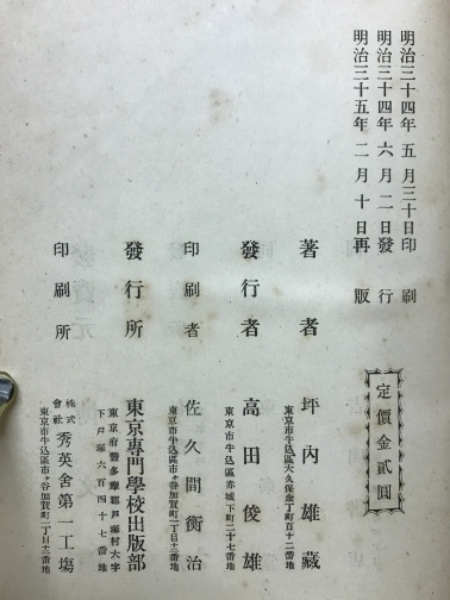 明治三十四年五月三十日印刷
明治三十四年六月二日發行
明治三十五年二月十日再版
定價金貳圓
著者
坪內雄藏
東京市牛込區大久保余丁町百十二番地
發行者
高田俊雄
東京市牛込區赤城下町二十七番地
印刷者
佐久間衡治
東京市牛込區市ヶ谷加賀町一丁目十二番地
發行所
東京專門學校出版部
東京府豐多摩郡戶塚村大字
下戶塚六百四十七番地
印刷所
株式會社
秀英舍第一工場
東京市牛込區市ヶ谷加賀町一丁目十二番地